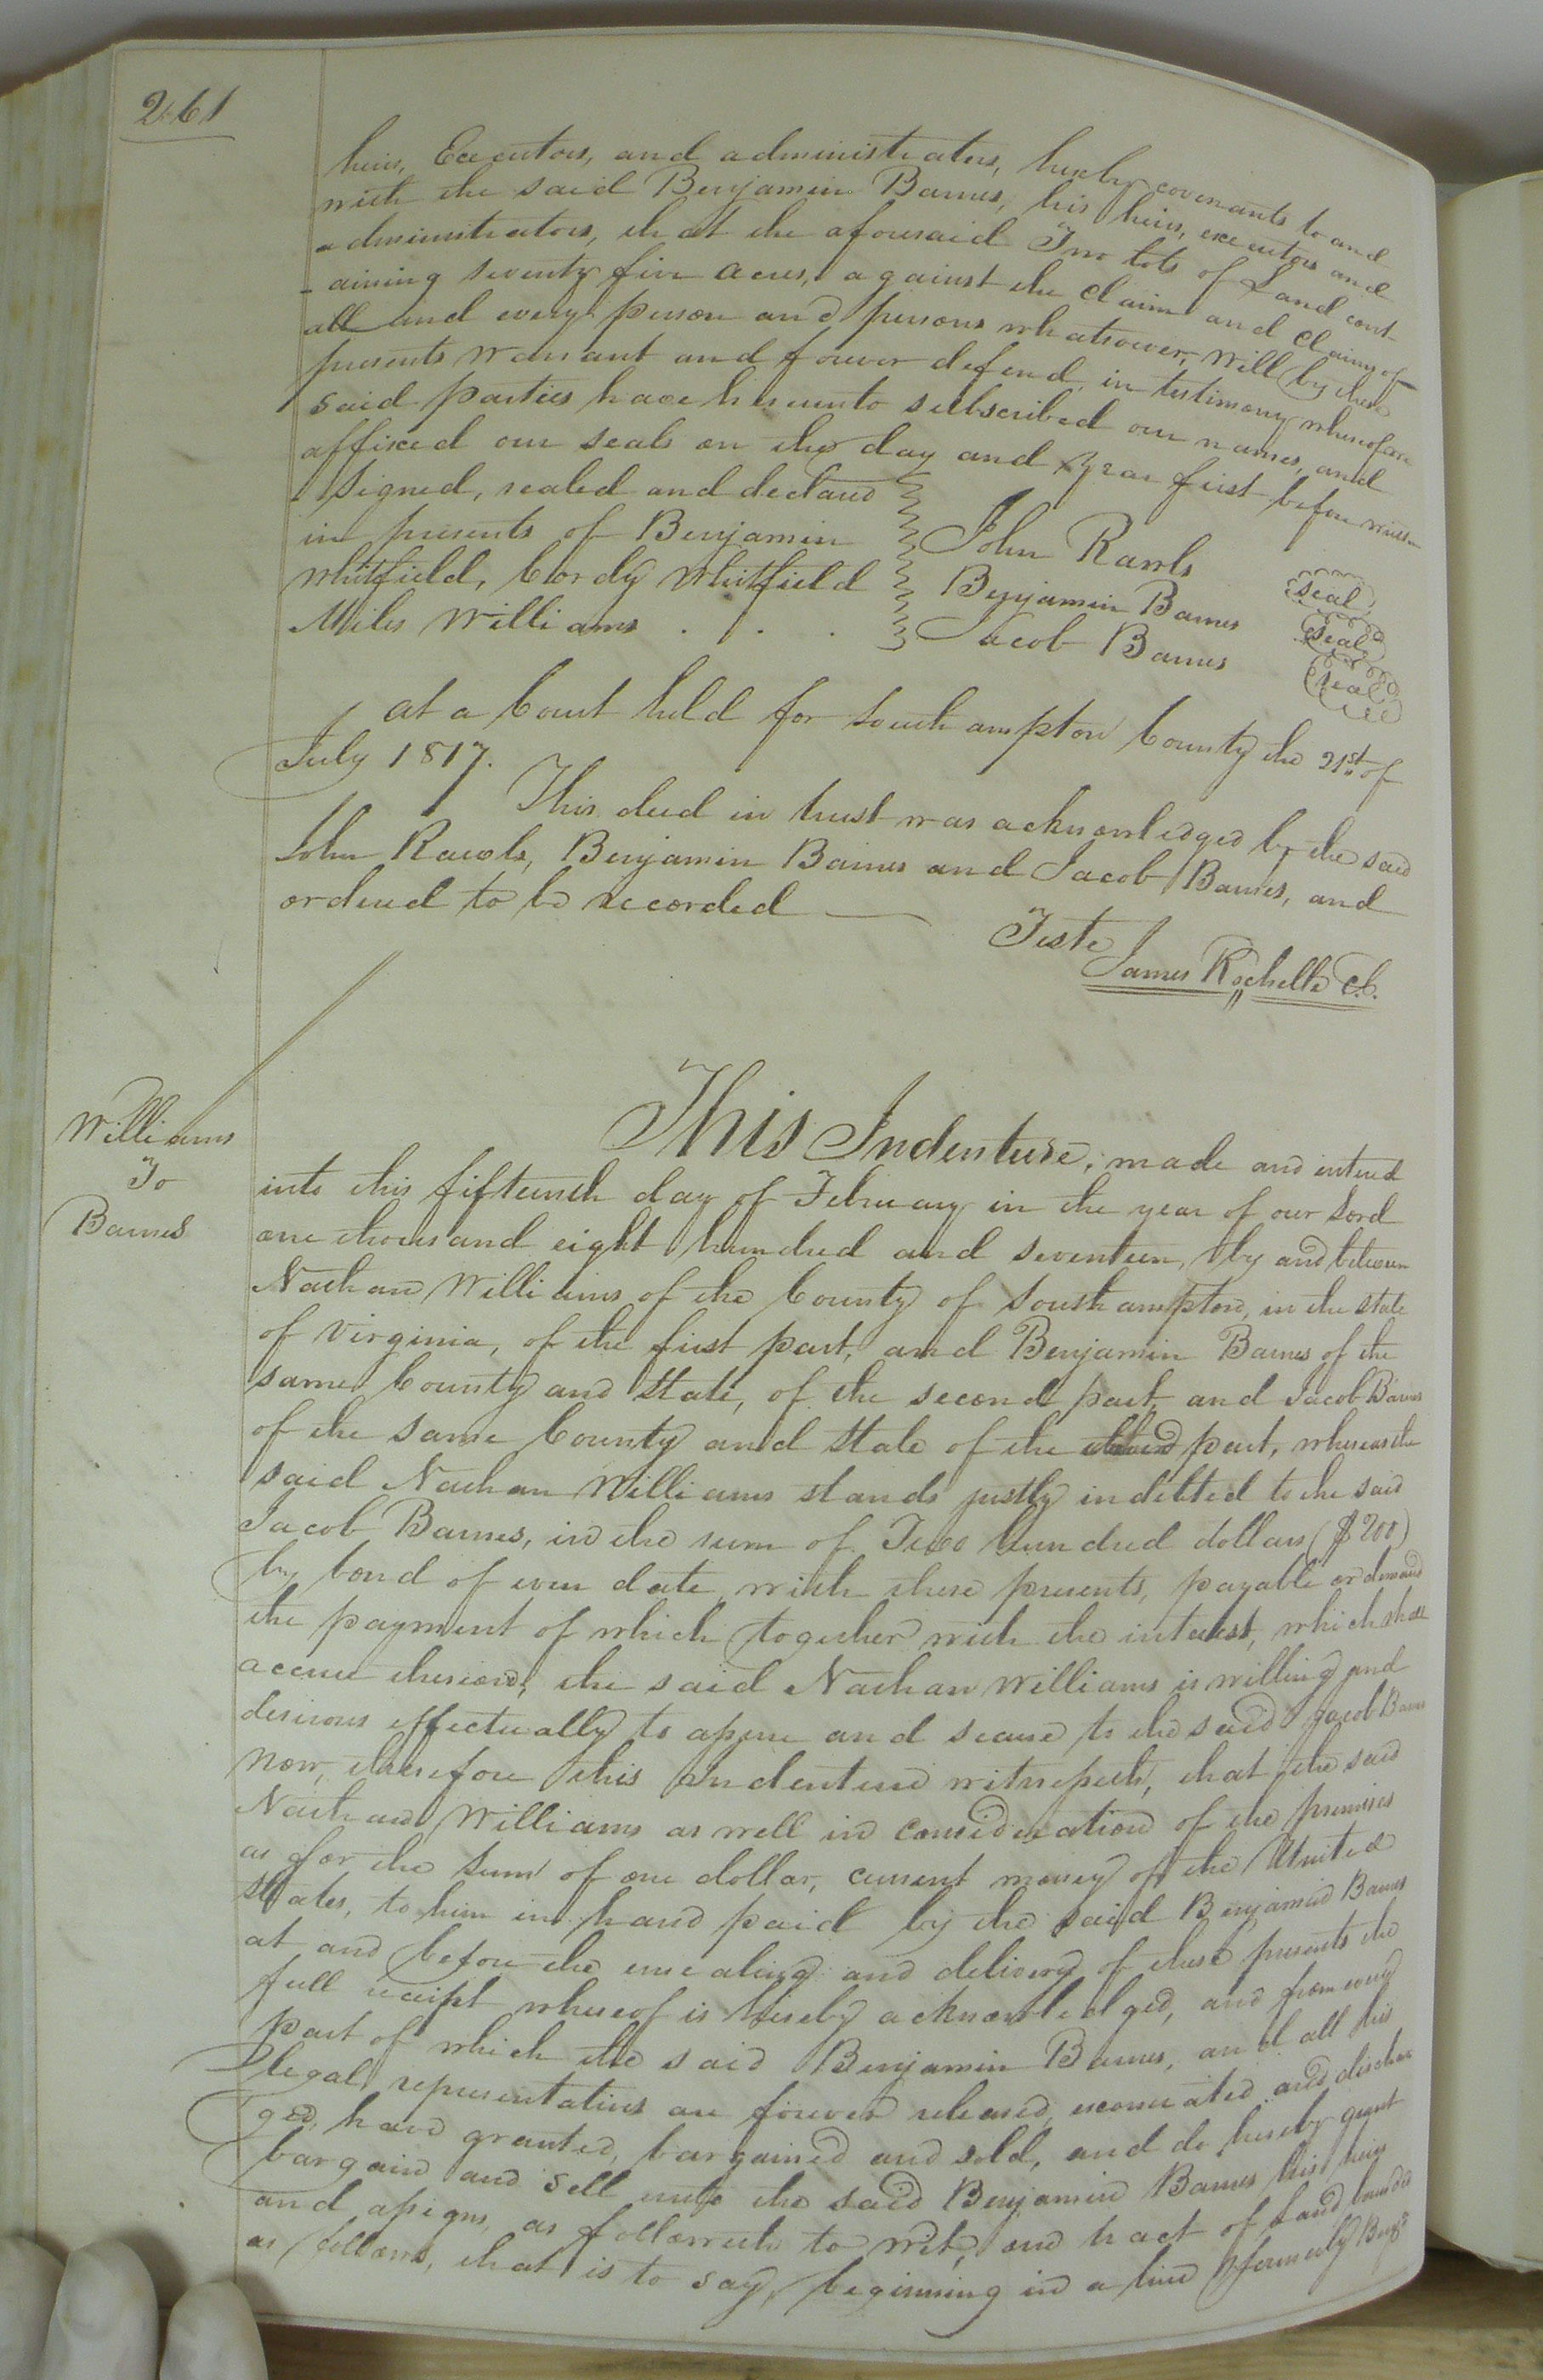 261
heirs, Executors, and administrators, hereby covenants to and
with the said Benjamin Barnes, his heirs, executors and
administrators, that the aforesaid Two lots of Land cont-
-aining seventy five acres, against the claim and claims of
all and every person and persons whatsoever, will by these
presents warrant and forever defend, in testimony whereof we
said parties have hereunto subscribed our names, and
affixed our seals on the day and year first before written
Signed, sealed and declared
in presents of Benjamin
Whitfield, Cordy Whitfield
Miles Williams . . .
John Rawls seal
Benjamin Barnes seal
Jacob Barnes seal
at a Court held for Southampton County the 21st of
July 1817.
This deed in trust was acknowledged by the said
John Rawls, Benjamin Barnes and Jacob Barnes, and
ordered to be recorded
Teste
James Rochelle C.C.
Williams
To
Barnes
This Indenture, made and entered
into this fifteenth day of February in the year of our Lord
one thousand eight hundred and seventeen, by and between
Nathan Williams of the County of Southampton, in the state
of Virginia, of the first part, and Benjamin Barnes of the
same County and State, of the second part, and Jacob Barnes
of the same County and State of the third part, whereas the
said Nathan Williams stands justly indebted to the said
Jacob Barnes, in the sum of Two hundred dollars ($200)
by bond of even date with these presents, payable on demand
the payment of which together with the interest, which shall
accrue thereon, the said Nathan Williams is willing and
desirous effectually to assure and secure to the said Jacob Barnes
now, therefore this Indenture witnesseth, that the said
Nathan Williams as well in consideration of the premises
as for the sum of one dollar, current money of the United
States, to him in hand paid by the said Benjamin Barnes
at and before the ensealing and delivery of these presents the
full receipt whereof is hereby acknowledged, and from every
part of which the said Benjamin Barnes, and all his
legal, representatives are forever released, exonerated and dischar
ged, have granted, bargained and sold, and do hereby grant
bargain and sell unto the said Benjamin Barnes his heirs
and assigns, as followeth to wit, one tract of Land, bounded
as follows, that is to say, beginning in a line formerly Benjn